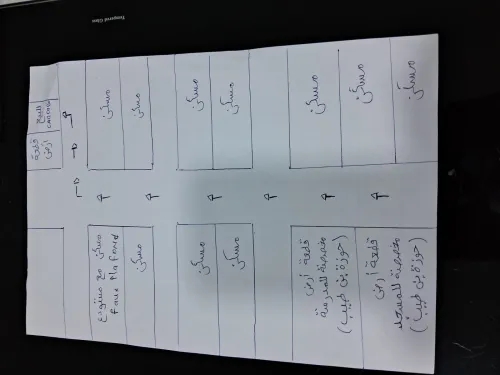 Tempered Glass
قطعة
أرض
للبيع
مسكن
مسكن
مسكن
مسكن
مسكن
مسكن
مسكن
مسكن مع مستودع
Faux plafond
مسكن
مسكن
مسكن
قطعة أرض
مخصصة للمدرسة
(حوزة بن طيب)
قطعة أرض
مخصصة للمسجد
(حوزة بن طيب)